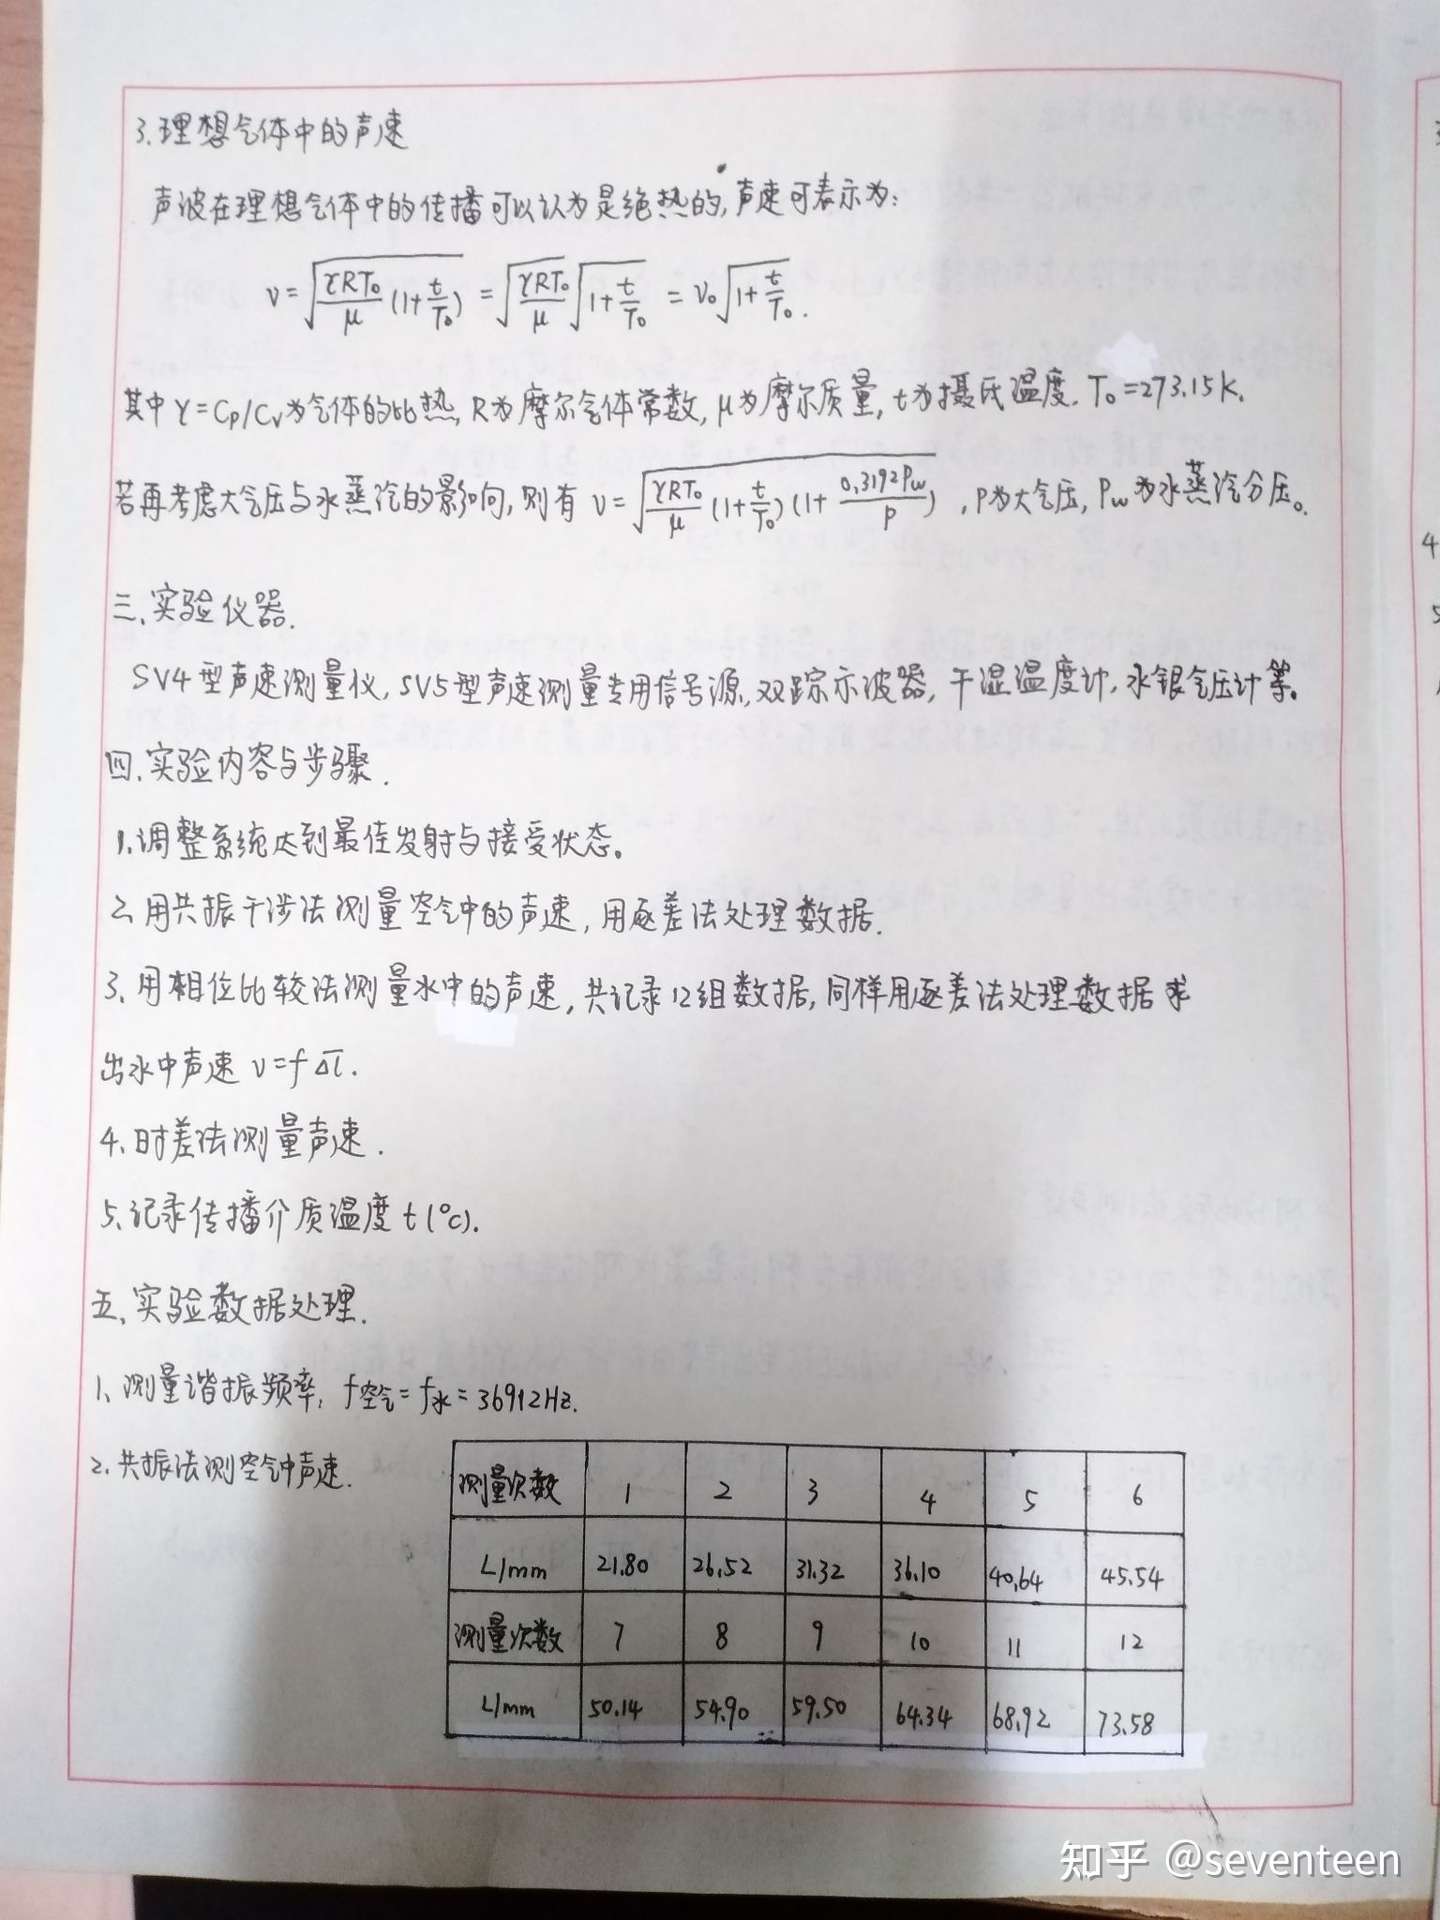 3.理想气体中的声速
声波在理想气体中的传播可以认为是绝热的,声速可表示为:
v=√(γRT₀/μ (1+t/T₀)) = √(γRT₀/μ) √(1+t/T₀) = v₀√(1+t/T₀).
其中γ=Cp/Cv为气体的比热,R为摩尔气体常数,μ为摩尔质量,t为摄氏温度.T₀=273.15K.
若再考虑大气压与水蒸汽的影响,则有 v=√(γRT₀/μ (1+t/T₀)(1+ 0.3192Pw/P)) ,P为大气压,Pw为水蒸汽分压。
三.实验仪器.
SV4型声速测量仪,SV5型声速测量专用信号源,双踪示波器,干湿温度计,水银气压计等。
四.实验内容与步骤.
1.调整系统达到最佳发射与接受状态。
2.用共振干涉法测量空气中的声速,用逐差法处理数据.
3.用相位比较法测量水中的声速,共记录12组数据,同样用逐差法处理数据求
出水中声速 v=fΔl̅.
4.时差法测量声速.
5.记录传播介质温度t(℃).
五.实验数据处理.
1.测量谐振频率,f空气=f水=36912Hz.
2.共振法测空气中声速.
测量次数 1 2 3 4 5 6
L/mm 21.80 26.52 31.32 36.10 40.64 45.54
测量次数 7 8 9 10 11 12
L/mm 50.14 54.90 59.50 64.34 68.92 73.58
知乎 @seventeen